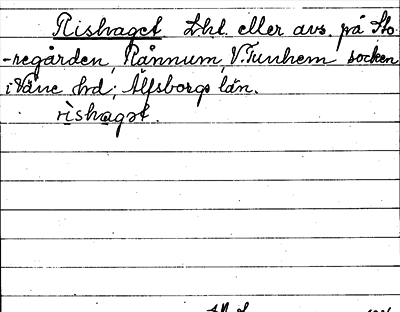 Rishaget Lht. eller avs. på Sto-
-regården, Rånnum, V. Tunhem socken
i Väne hd, Älfsborgs län.
rishagət.